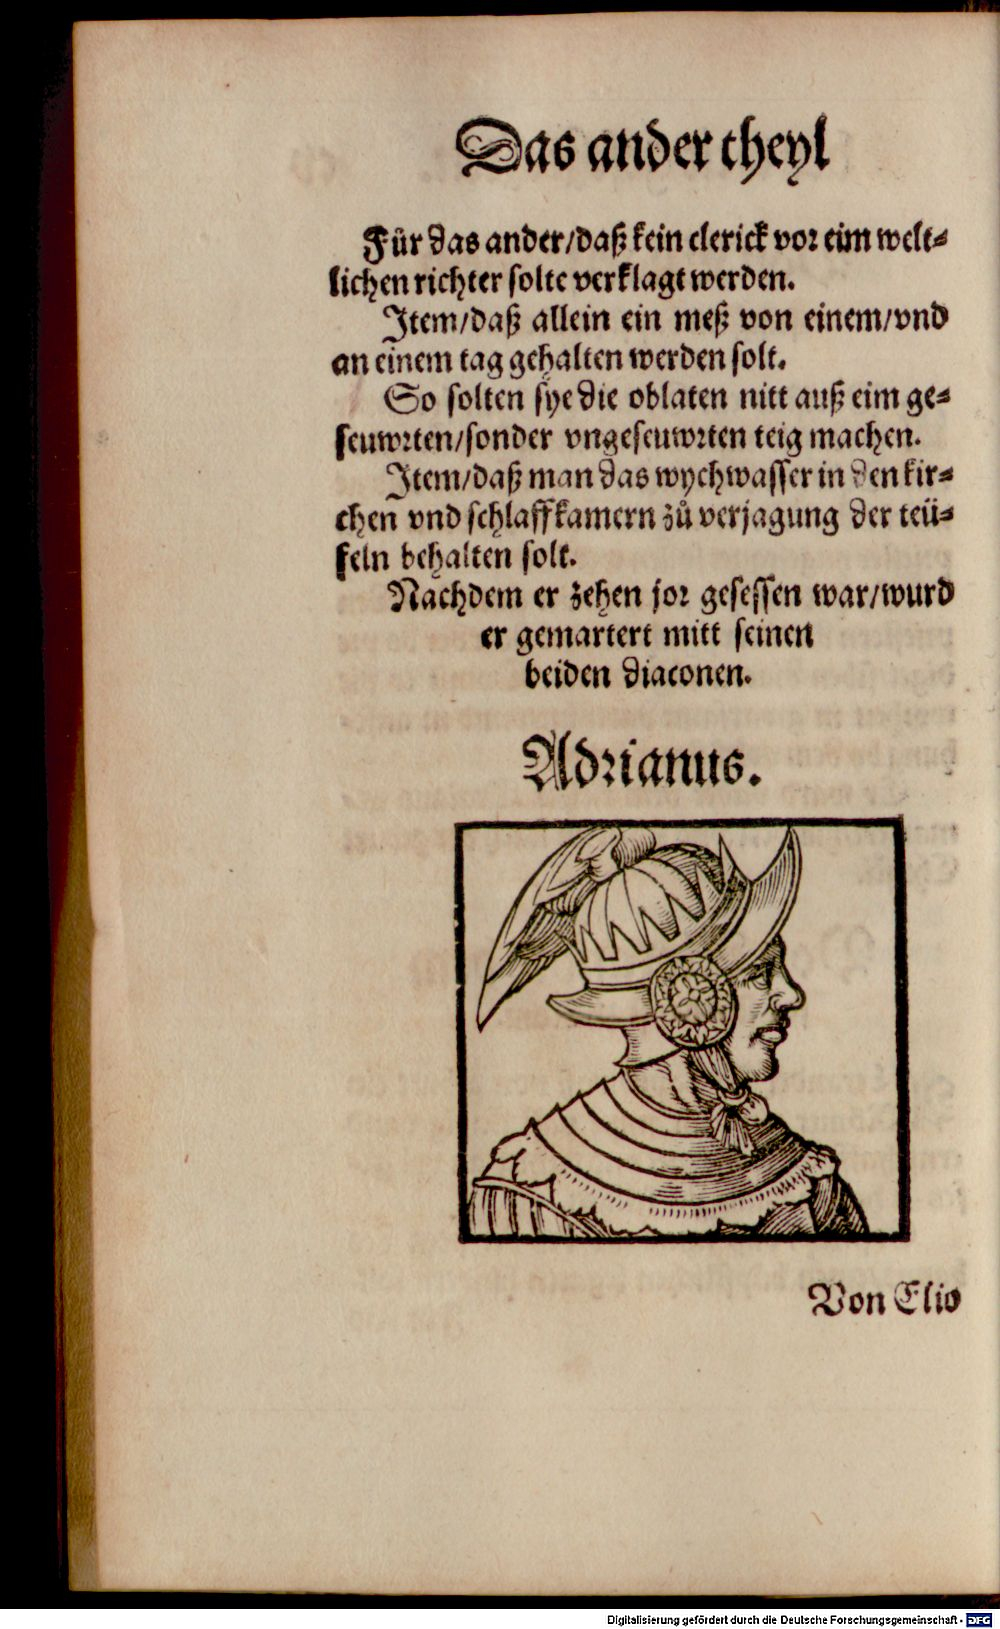 Das ander theyl
Für das ander/daß kein clerick vor eim welt-
lichen richter solte verklagt werden.
Item/daß allein ein meß von einem/vnd
an einem tag gehalten werden solt.
So solten sye die oblaten nitt auß eim ge-
seuwrten/sonder vngeseuwrten teig machen.
Item/daß man das wychwasser in den kir-
chen vnd schlaffkamern zů verjagung der teü-
feln behalten solt.
Nachdem er zehen jor gesessen war/wurd
er gemartert mitt seinen
beiden diaconen.
Adrianus.
Von Elio
Digitalisierung gefördert durch die Deutsche Forschungsgemeinschaft - DFG